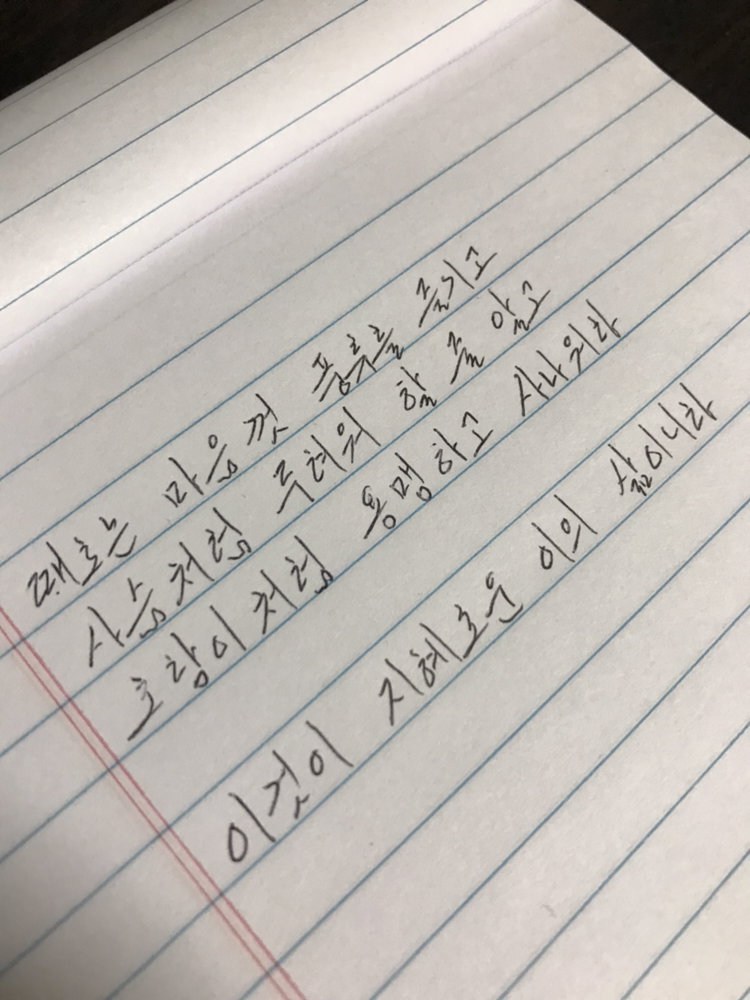 때로는 마음껏 풍류를 즐기고
사슴처럼 두려워 할 줄 알고
호랑이처럼 용맹하고 사나워라
이것이 지혜로운 이의 삶이니라